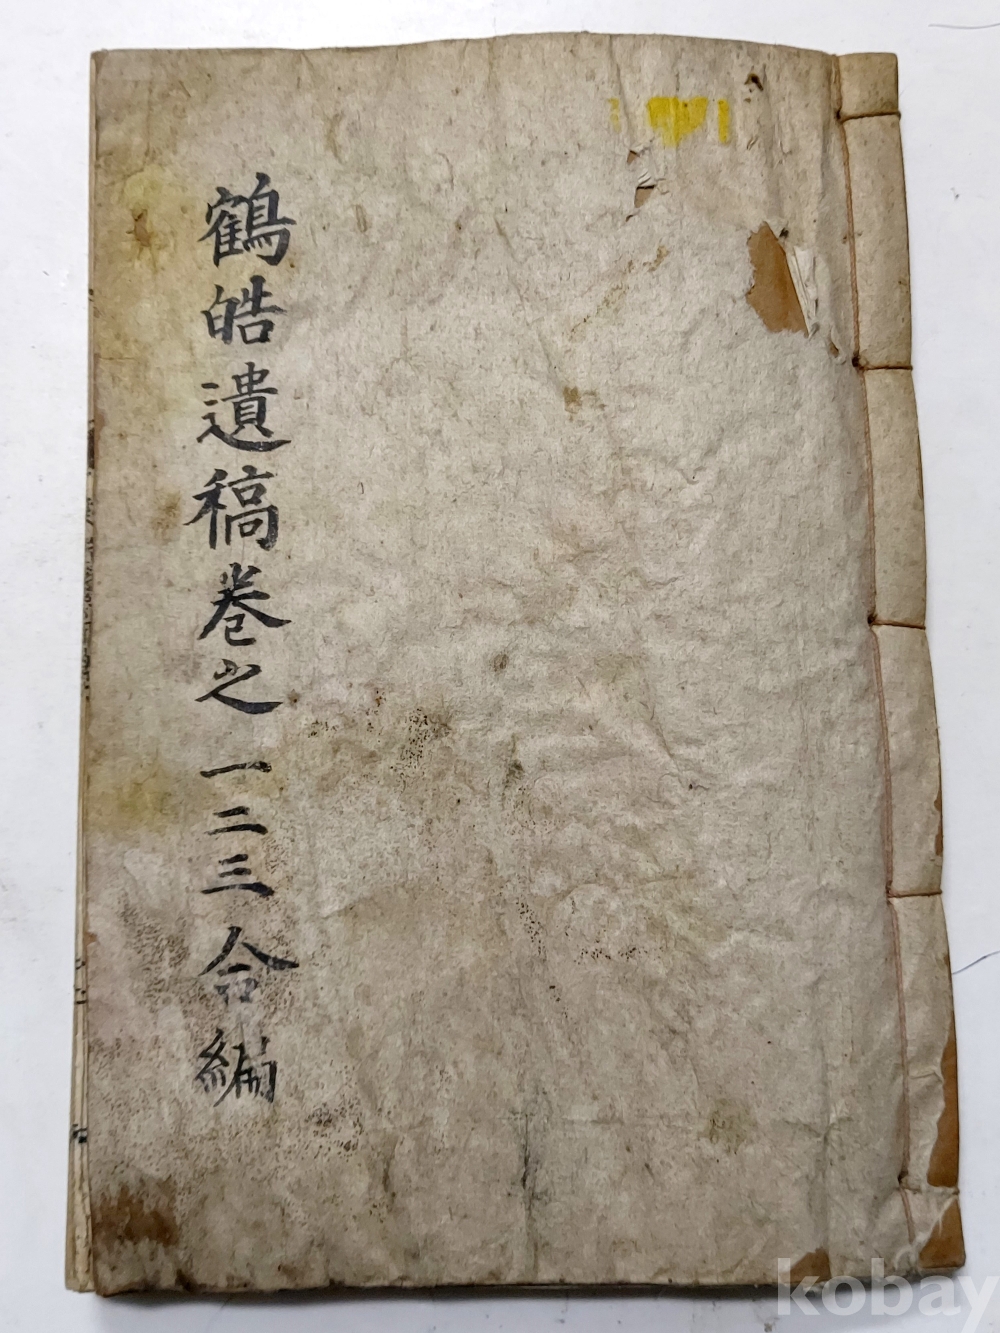 鶴皓遺稿卷之一二三合編
kobay